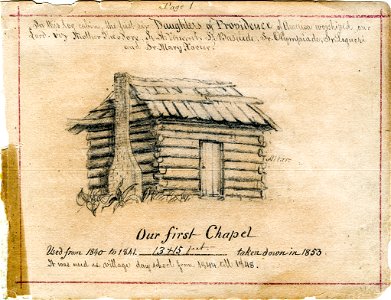 Page 1
In this log cabin, the first six Daughters of Providence of America worshiped our
Lord. viz Mother Theodore, St. St. Vincent, St. Basilide, Sr. Olympiade, Sr. Liguori
and Sr. Mary Xavier.
Altar
Our first Chapel
Used from 1840 to 1841. 13 + 15 feet taken down in 1853
It was used as village day school from 1844 till 1848.